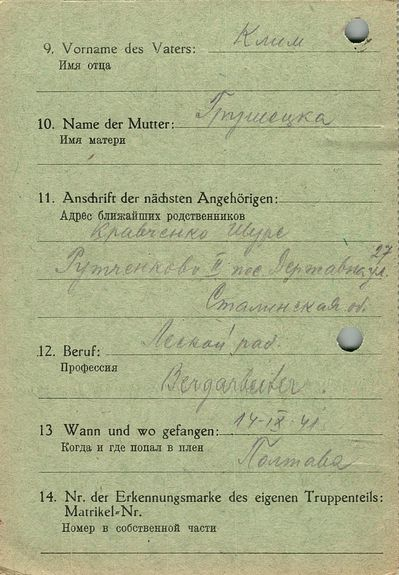 9. Vorname des Vaters: Клим
Имя отца
10. Name der Mutter: Грушецка
Имя матери
11. Anschrift der nächsten Angehörigen:
Адрес ближайших родственников
Кравченко Шуре
27
Рутченково II пос Державна ул.
Сталинская об.
12. Beruf: раб.
Профессия
Bergarbeiter.
13 Wann und wo gefangen: 14-IX-41
Когда и где попал в плен
Полтава
14. Nr. der Erkennungsmarke des eigenen Truppenteils:
Matrikel-Nr.
Номер в собственной части